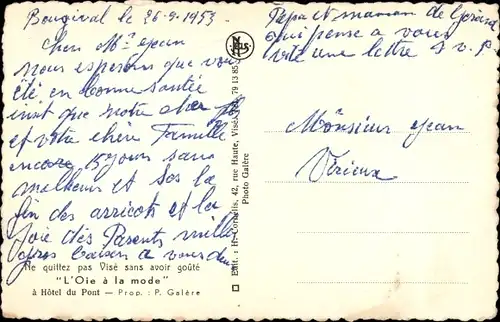 Bougival le 26-9-1953
Cher Mr Jean
nous esperons que vous
été en bonne santée
insit que notre cher
et votre cher Famille
encore 15 jours sans
malheur et sos la
fin des arricots et la
joie des Parents mille
gros baiser a vous deu
Ne quittez pas Visé sans avoir goûté
"L'Oie à la mode"
à Hôtel du Pont — Prop. : P. Galère
Edit. : H. Cornelis, 42, rue Haute, Visé. Tél. 79 13 85
Photo Galère
Nels
Papa et maman de Gerard
qui pense a vous
vite une lettre S V P
Monsieur Jean